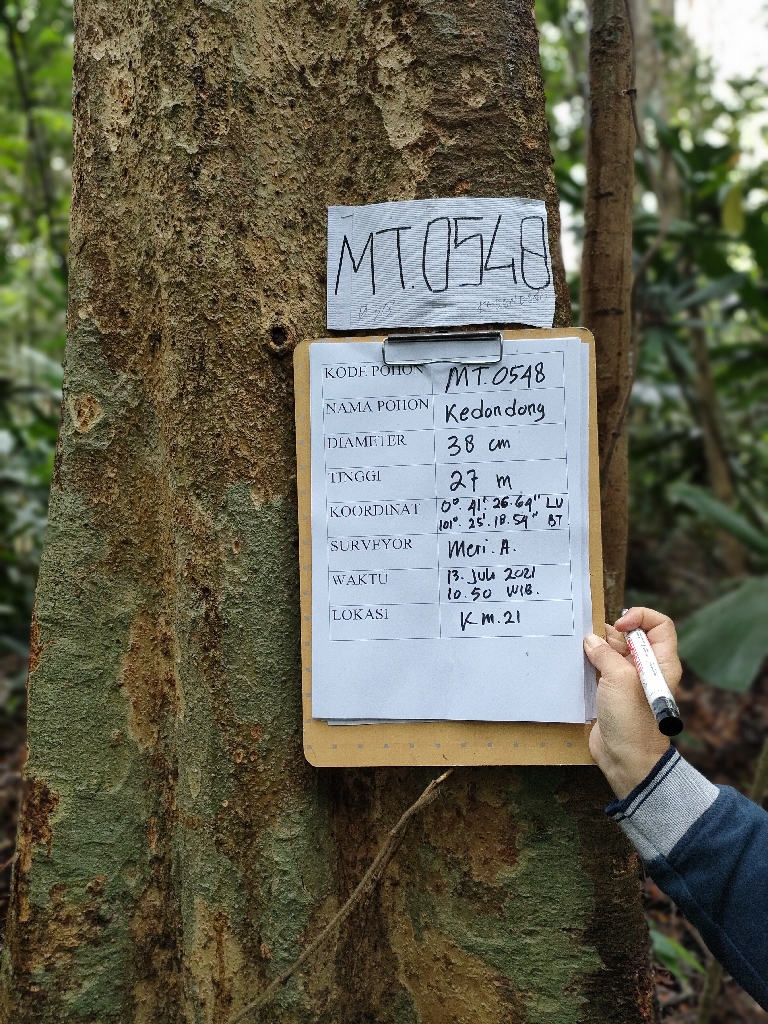 MT.0548
KODE POHON MT.0548
NAMA POHON Kedondong
DIAMETER 38 cm
TINGGI 27 m
KOORDINAT 0°. 41'. 26.64" LU
101°. 25'. 18.54" BT
SURVEYOR Meri. A.
WAKTU 13. Juli 2021
10.50 WIB.
LOKASI Km.21